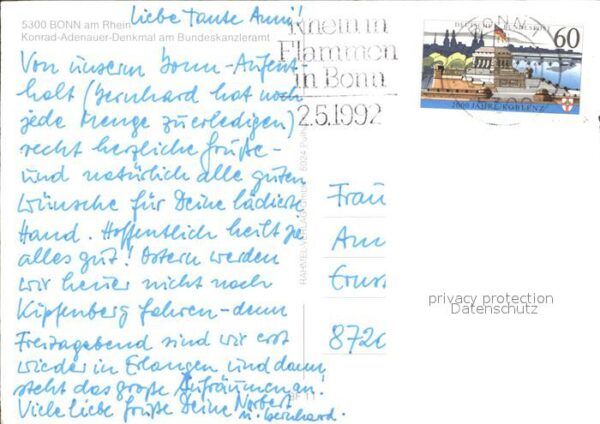 Liebe Tante Anni!
5300 BONN am Rhein
Konrad-Adenauer-Denkmal am Bundeskanzleramt
Von unserm Bonn-Aufent-
halt (Bernhard hat noch
jede Menge zu erledigen)
recht herzliche Grüße -
und natürlich alle guten
Wünsche für Deine lädierte
Hand. Hoffentlich heilt
alles gut! Ostern werden
wir heuer nicht nach
Kipfenberg fahren - denn
Freitagabend sind wir erst
wieder in Erlangen und dann
steht das große Aufräumen an!
Viele liebe Grüße Deine Norbert
u. Bernhard.
Rhein in
Flammen
in Bonn
2.5.1992
BONN
DEUTSCHE BUNDESPOST
60
2000 JAHRE KOBLENZ
RAHMEL-VERLAG
Frau
Ernst
872
privacy protection
Datenschutz